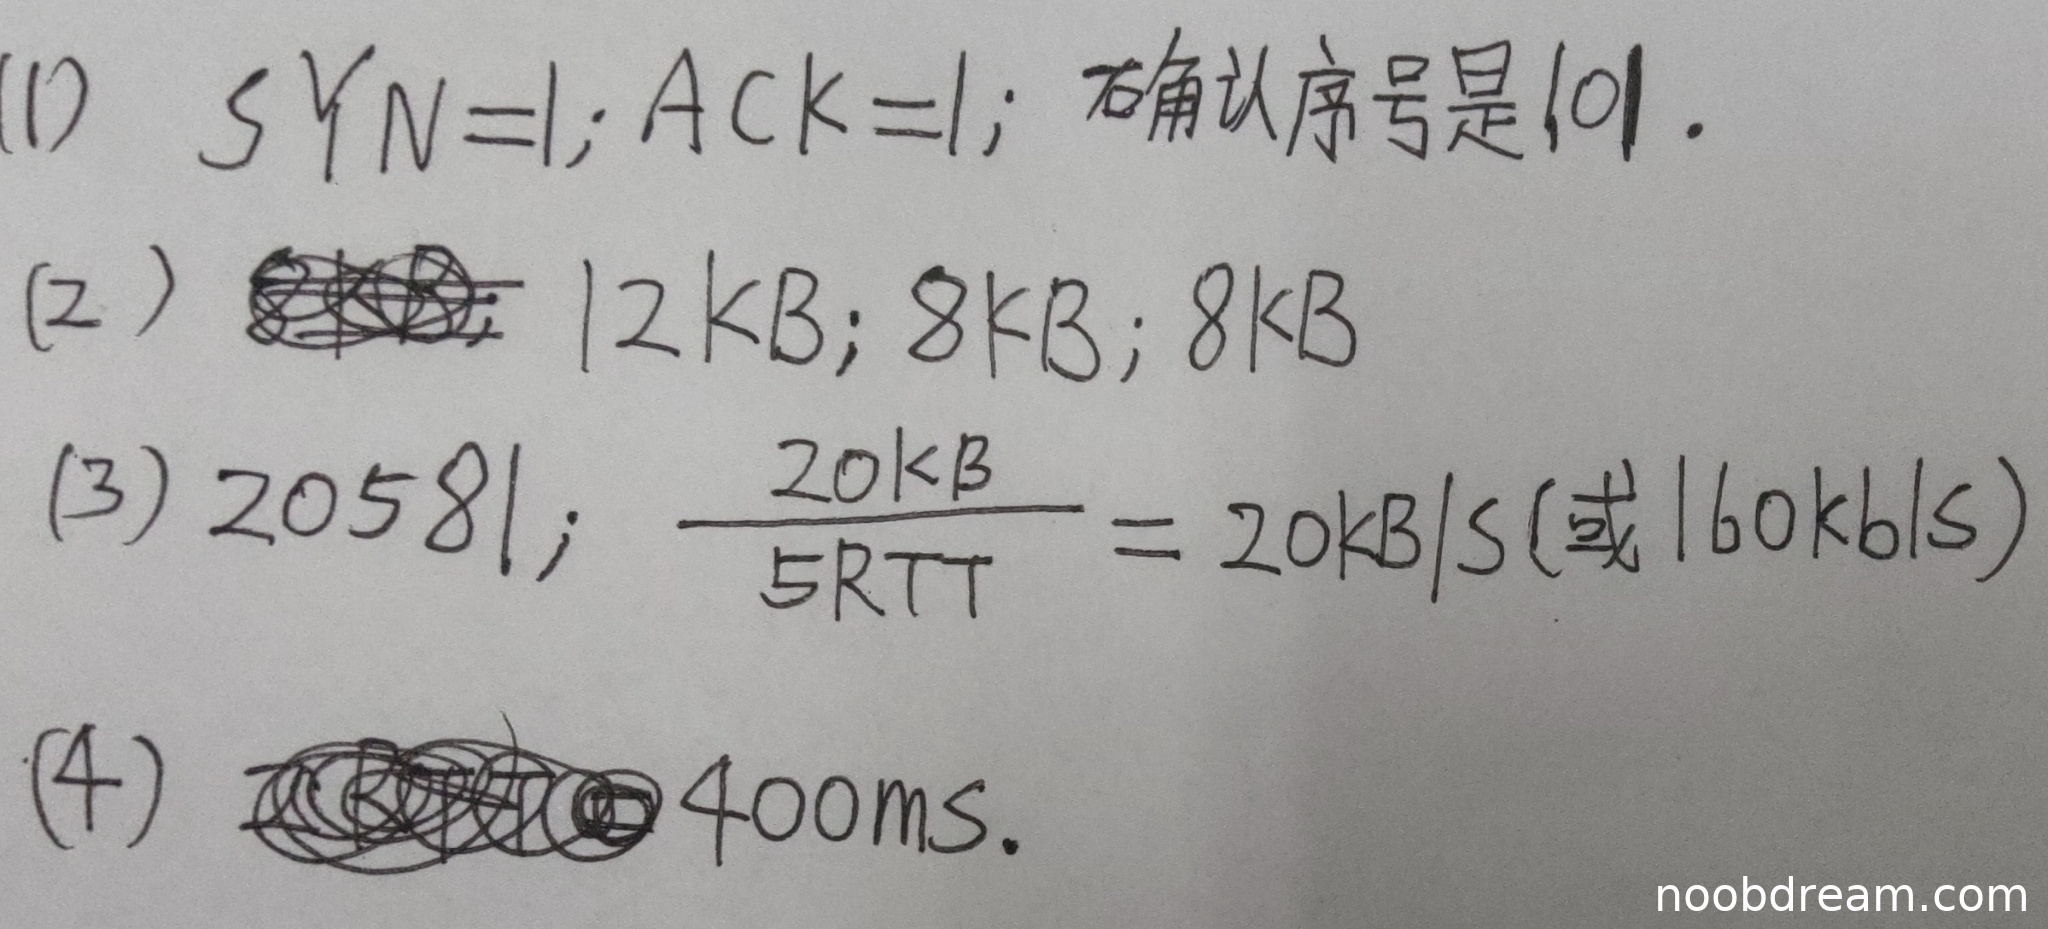 (1) SYN=1; ACK=1; 确认序号是101.
(2) 12KB; 8KB; 8KB
(3) 20581; 20KB/5RTT = 20KB/S(或160Kb/S)
(4) 400ms.
noobdream.com